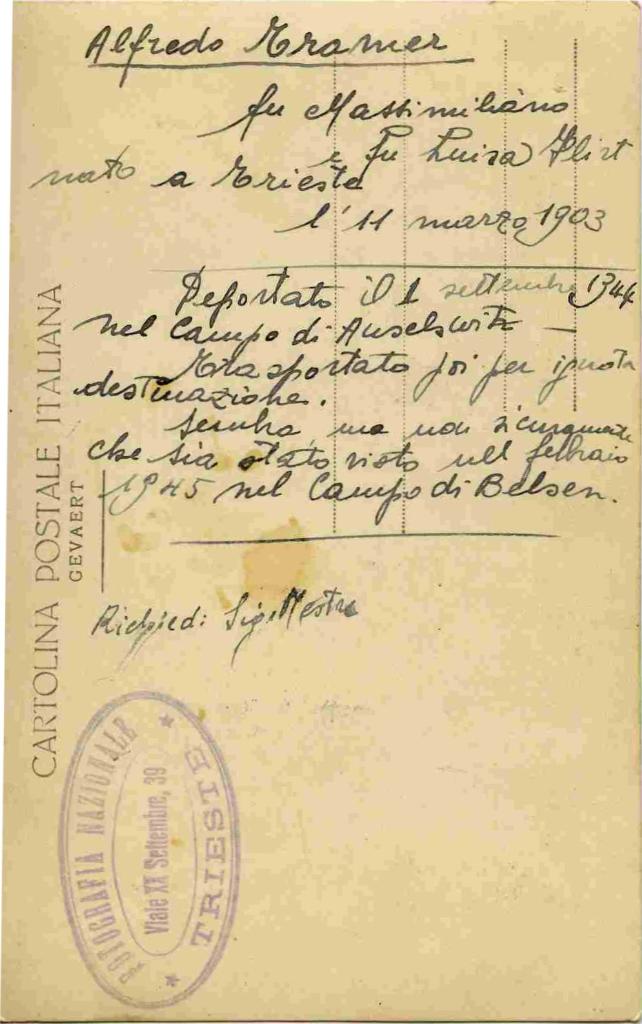 Alfredo Kramer
fu Massimiliano
e fu Luisa
nato a Trieste
l'11 marzo 1903
Deportato il 1 settembre 1944
nel Campo di Auselswitz —
Trasportato poi per ignota
destinazione.
Sembra ma non sicuramente
che sia stato visto nell febbraio
1945 nel Campo di Belsen.
Richiedi Sig. Mestre
CARTOLINA POSTALE ITALIANA
GEVAERT
FOTOGRAFIA NAZIONALE
Viale XX Settembre, 39
TRIESTE